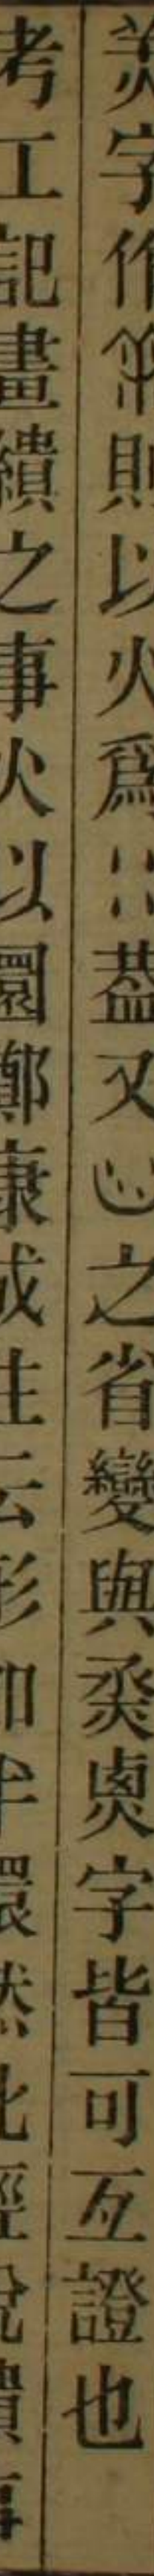 字作則以火爲蓋又之省變與字皆可互證也
考工記畫繢之事火以圜鄭康成注云形如半環然此經說繢事